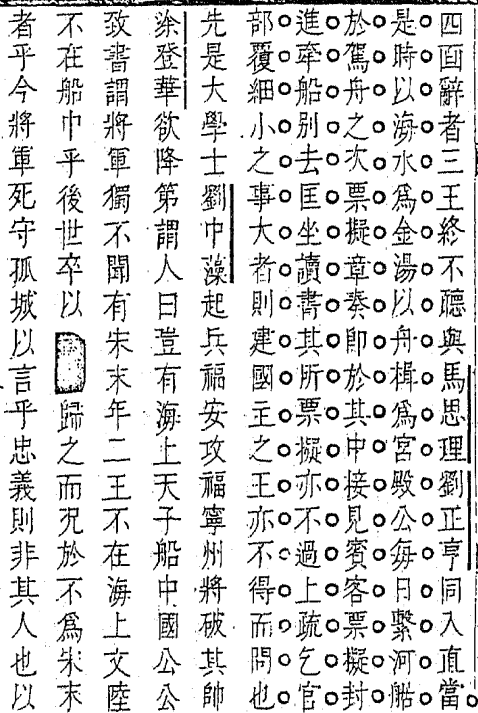 四面辭者三王終不聽與馬思理劉正亨同入直當
是時以海水爲金湯以舟楫爲宮殿公每日繫河船
於駕舟之次票擬章奏卽於其中接見賓客票擬封
進牽船别去匡坐讀書其所票擬亦不過上疏乞官
部覆細小之事大者則建國主之王亦不得而問也
先是大學士劉中藻起兵福安攻福寧州將破其帥
涂登華欲降第謂人曰豈有海上天子船中國公公
致書謂將軍獨不聞有朱末年二王不在海上文陸
不在船中乎後世卒以歸之而况於不爲朱末
者乎今將軍死守孤城以言乎忠義則非其人也以